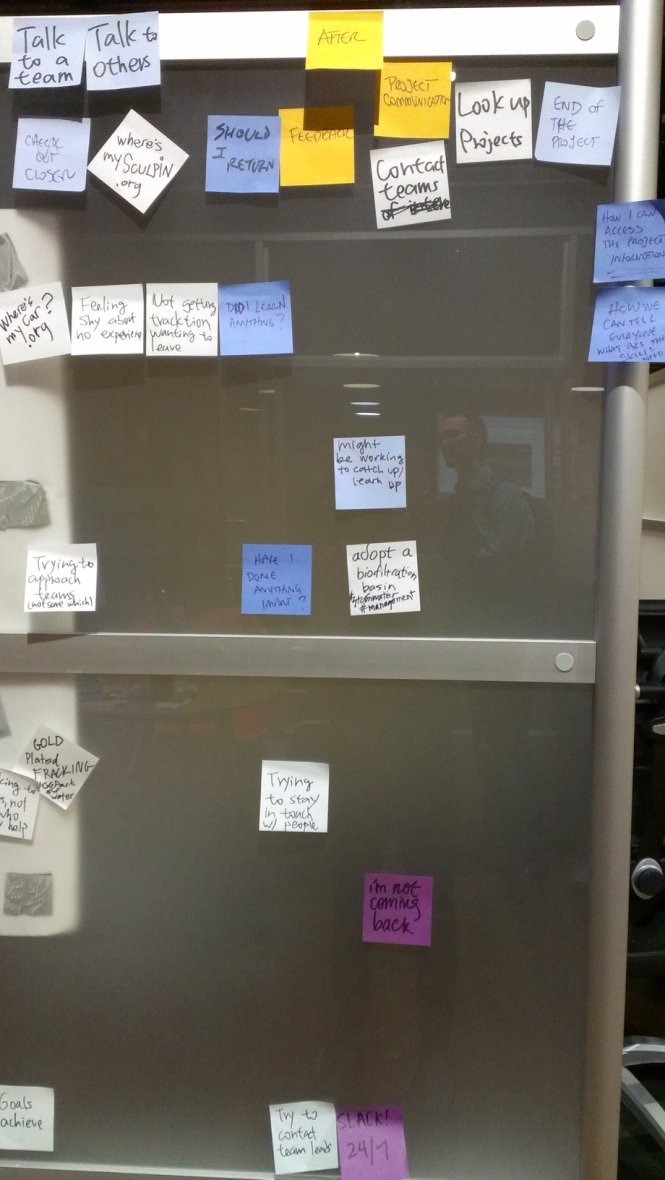 Talk
to a
team
Talk to
others
AFTER
PROJECT
COMMUNICATION
Look up
Projects
END OF
THE
PROJECT
CHECK
OUT
CLOSER
where's
my SCULPIN
.org
SHOULD
I
RETURN
FEEDBACK
Contact
teams
of
HOW I CAN
ACCESS
THE PROJECT
INFORMATION
where's
my car?
.org
Feeling
shy about
no experience
Not getting
tracktion
wanting to
leave
DID I LEARN
ANYTHING?
HOW WE
CAN TELL
EVERYONE
WHAT ARE THE
SKILLS NEED
might
be working
to catch up/
learn up
Trying to
approach
teams
(not sure which)
HAVE I
DONE
ANYTHING
IMPORT.?
adopt a
biofiltration
basin
#stormwater
#management
GOLD
Plated
FRACKING
water
king to
s, not
who
help
Trying
to stay
in touch
w/ people
i'm not
coming
back
Goals
achieve
Try to
contact
team leads
SLACK!
24/7